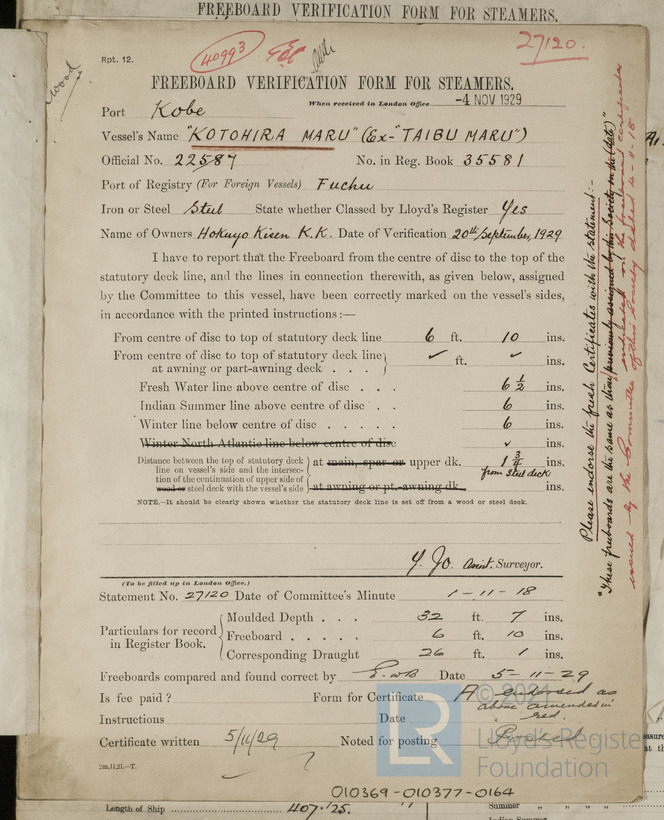 FREEBOARD VERIFICATION FORM FOR STEAMERS.
Rpt. 12.
40993
27120.
wood
FREEBOARD VERIFICATION FORM FOR STEAMERS.
When received in London Office -4 NOV 1929
Port Kobe
Vessel's Name "KOTOHIRA MARU" (Ex-"TAIBU MARU")
Official No. 22587 No. in Reg. Book 35581
Port of Registry (For Foreign Vessels) Fuchu
Iron or Steel Steel State whether Classed by Lloyd's Register Yes
Name of Owners Hokuyo Kisen K.K. Date of Verification 20th/September, 1929
I have to report that the Freeboard from the centre of disc to the top of the
statutory deck line, and the lines in connection therewith, as given below, assigned
by the Committee to this vessel, have been correctly marked on the vessel's sides,
in accordance with the printed instructions:—
From centre of disc to top of statutory deck line 6 ft. 10 ins.
From centre of disc to top of statutory deck line
at awning or part-awning deck . . . ✓ ft. ✓ ins.
Fresh Water line above centre of disc . . . 6 1/2 ins.
Indian Summer line above centre of disc . . 6 ins.
Winter line below centre of disc . . . . . 6 ins.
Winter North Atlantic line below centre of disc ✓ ins.
Distance between the top of statutory deck
line on vessel's side and the intersec-
tion of the continuation of upper side of
wood or steel deck with the vessel's side
at main, spar or upper dk. 1 3/4 ins.
from steel deck
at awning or pt.-awning dk. ins.
NOTE.—It should be clearly shown whether the statutory deck line is set off from a wood or steel deck.
Y. Jo. Assist. Surveyor.
(To be filled up in London Office.)
Statement No. 27120 Date of Committee's Minute 1-11-18
Particulars for record
in Register Book.
Moulded Depth . . . 32 ft. 7 ins.
Freeboard . . . . . 6 ft. 10 ins.
Corresponding Draught 26 ft. 1 ins.
Freeboards compared and found correct by Date 5-11-29
Is fee paid? Form for Certificate A endorsed as
above amended in
red.
Instructions Date
Certificate written 5/11/29 Noted for posting
2m,11,21.—T.
Please endorse the fresh Certificates with the statement:-
"These freeboards are the same as those previously assigned by this Society on the (date)"
indicated on the freeboard certificate
issued by the Committee of this Society dated 4-11-18
© 2021
LR
Lloyd's Register
Foundation
010369-010377-0164
Length of Ship 407.125.
Summer
Indian Summer